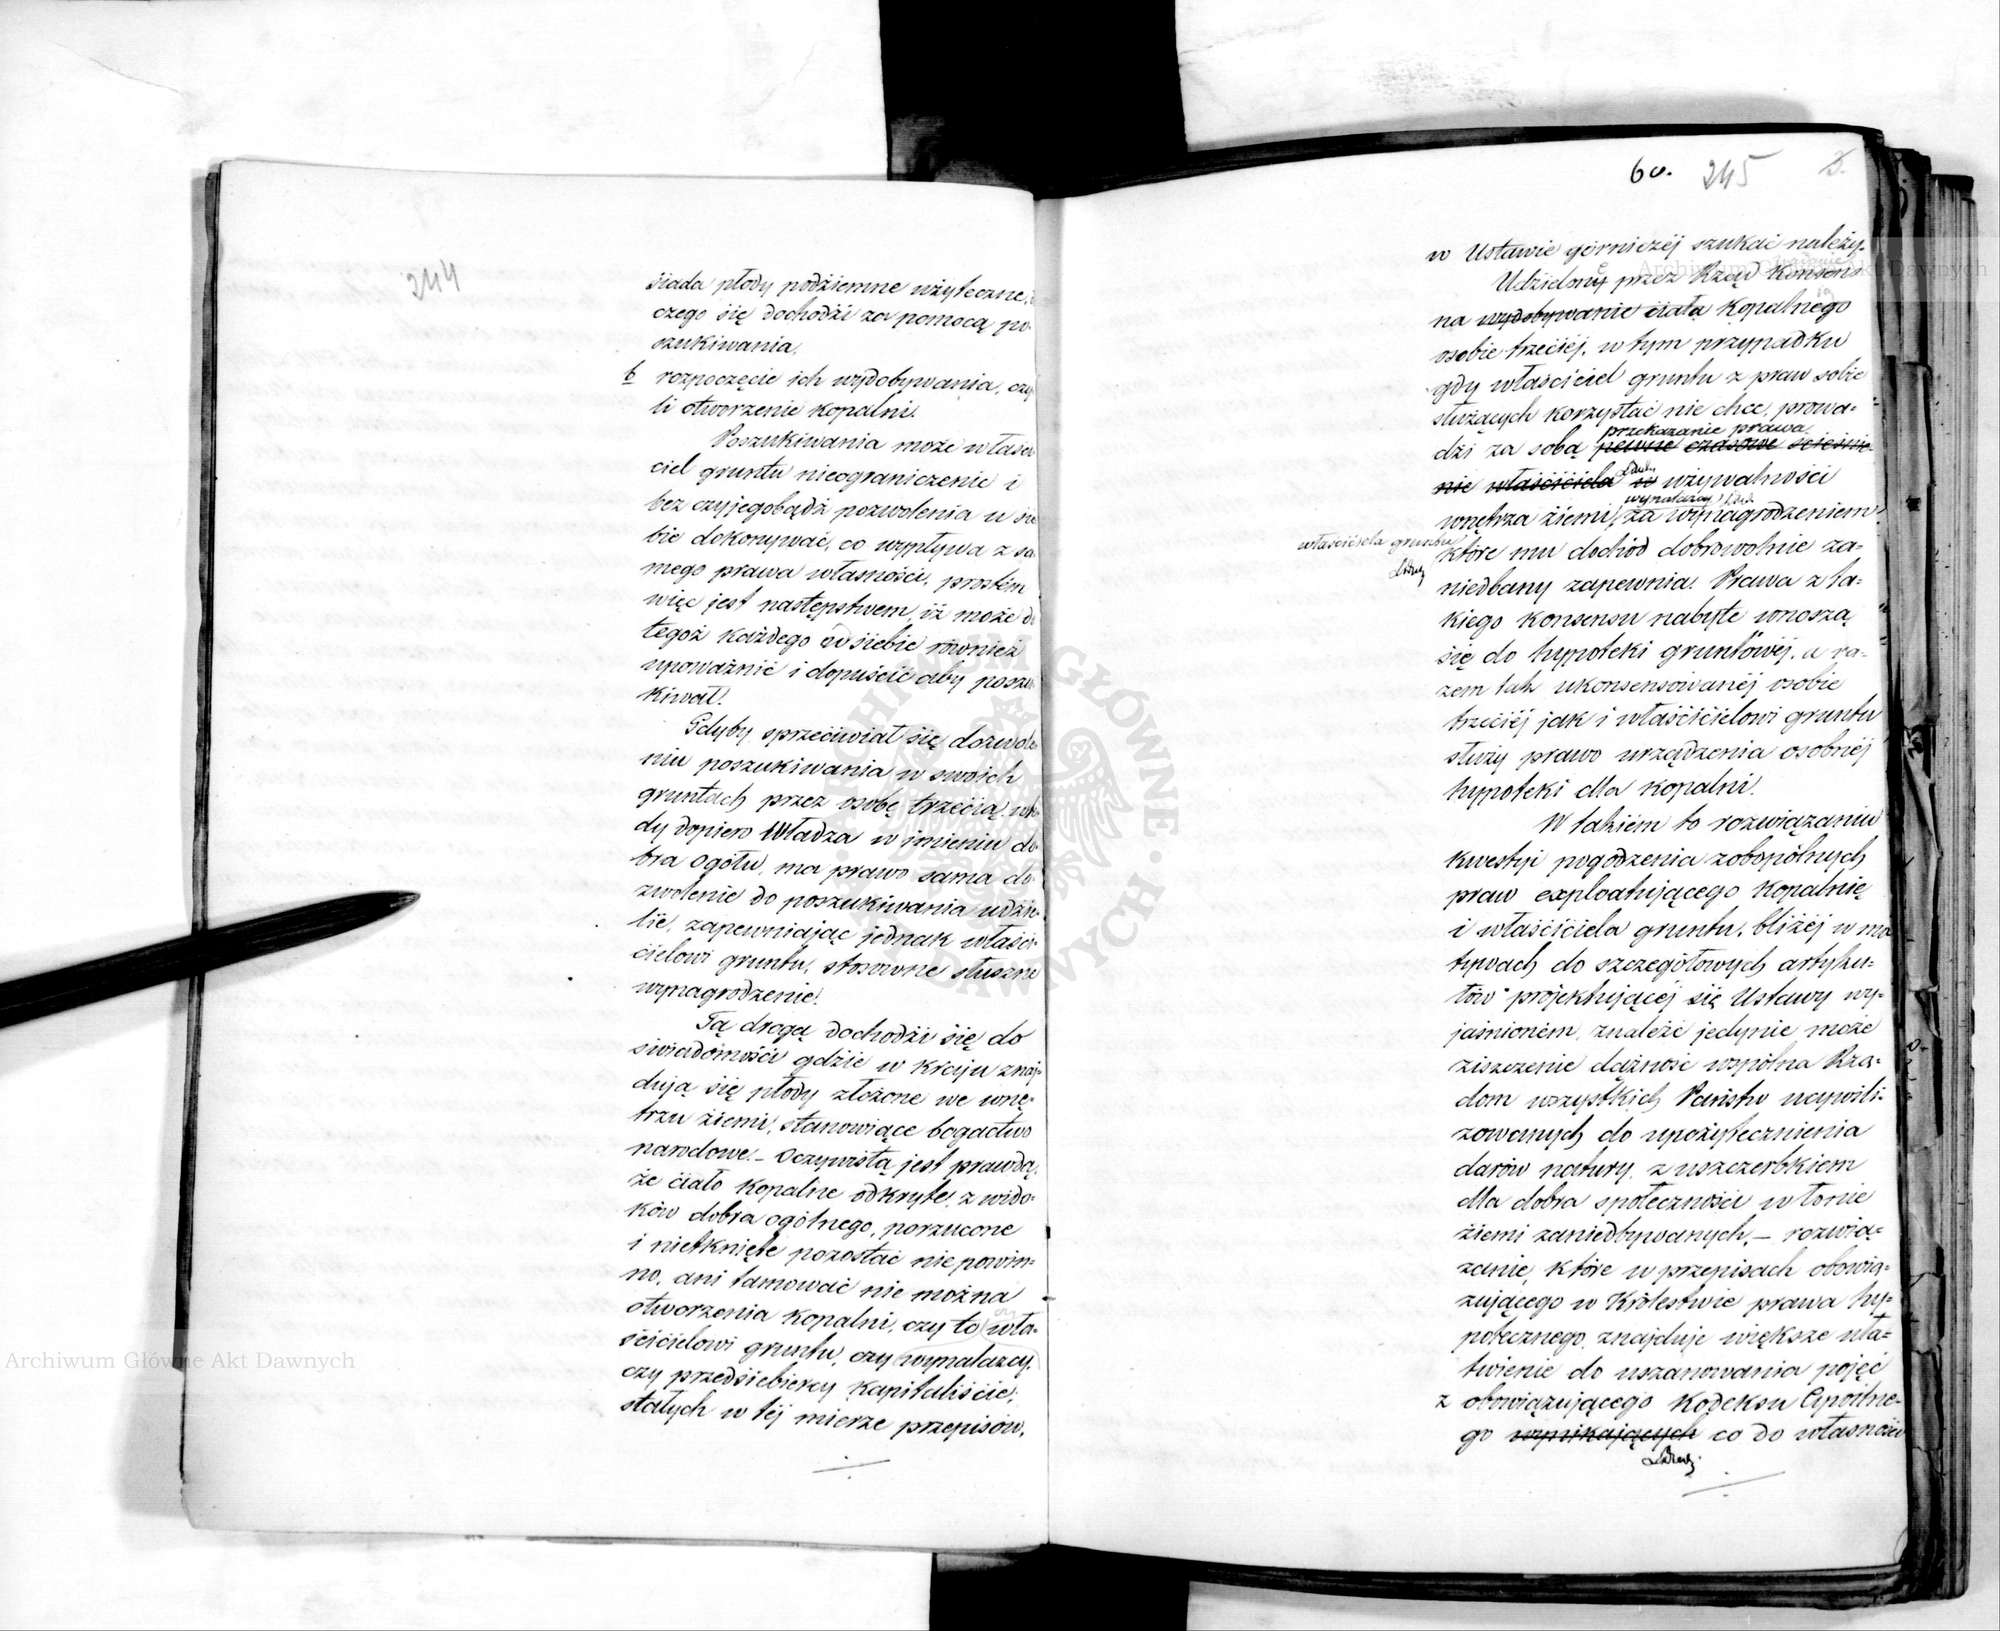 244
siada płody podziemne użyteczne,
czego się dochodzi za pomocą po-
szukiwania.
b rozpoczęcie ich wydobywania, czy
li otworzenie kopalni.
Poszukiwania może właści
ciel gruntu nieograniczenie i
bez czyjegobądź pozwolenia u sie
bie dokonywać, co wypływa z sa
mego prawa własności, prostém
więc jest następstwem, iż może do
tegoż każdego od siebie również
upoważnić i dopuścić aby poszu
kiwał.
Gdyby sprzeciwiał się dozwole
niu poszukiwania w swoich
gruntach przez osobę trzecią, wte
dy dopiero Władza w imieniu do-
bra ogółu, ma prawo sama do-
zwolenie do poszukiwania udzie-
lić, zapewniając jednak właści-
cielowi gruntu, stosowne słuszne
wynagrodzenie.
Tą drogą dochodzi się do
świadomości gdzie w kraju znaj-
dują się płody złożone we wnę-
trzu ziemi, stanowiące bogactwo
narodowe. - Oczywistą jest prawdą,
że ciało kopalne odkryte, z wido-
ków dobra ogólnego, porzucone
i nietknięte pozostać nie powin-
no, ani tamować nie można
otworzenia kopalni, czy to wła-
ścicielowi gruntu, czy wynalazcy,
czy przedsiebiercy kapitaliście;
stałych w téj mierze przepisów,
60. 245
w Ustawie górniczéj szukać należy.
Udzielony przez Rząd Konsens
na wydobywanie ciała kopalnego
osobie trzeciéj, w tym przypadku
gdy właściciel gruntu z praw sobie
służących korzystać nie chce, prowa-
przekazanie prawa
dzi za sobą pewne czasowe ścieśnie-
nie właściciela w używalności
wynalazcy
wnętrza ziemi, za wynagrodzeniem
właściciela gruntu
które mu dochód dobrowolnie za-
niedbany zapewnia. Prawa z ta-
kiego konsensu nabyte wnoszą
się do hypoteki gruntowéj, a ra-
zem tak ukonsensowanéj osobie
trzeciéj jak i właścicielowi gruntu
służy prawo urządzenia osobnéj
hypoteki dla kopalni.
W takiém to rozwiązaniu
kwestyi pogodzenia zobopólnych
praw exploatującego kopalnię
i właściciela gruntu, bliżéj w mo
tywach do szczegółowych artyku-
łów projektującéj się Ustawy wy-
jaśnioném, znaleźć jedynie może
ziszczenie dążność wspólna Rzą-
dom wszystkich Państw ucywili-
zowanych do upożytecznienia
darów natury, z uszczerbkiem
dla dobra społeczności w łonie
ziemi zaniedbywanych, - rozwią-
zanie, które w przepisach obowią-
zującego w Królestwie prawa hy-
potecznego, znajduje większe uła-
twienie do uszanowania pojęć
z obowiązującego Kodeksu Cywilne-
go wynikających co do własności
Archiwum Główne Akt Dawnych
ARCHIWUM GŁÓWNE AKT DAWNYCH